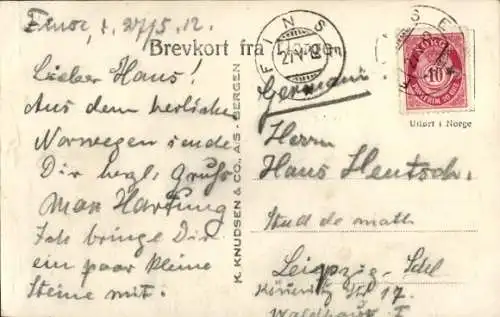 Finse, d. 27/5. 12.
Brevkort fra Norge.
Lieber Haus!
Aus dem herrlichen
Norwegen sende
Dir hrgl. Gruß
Max Hartung
Ich bringe Dir
ein paar kleine
Steine mit.
K. KNUDSEN & CO. A/S - BERGEN
FINSE
27 V 12
NORGE
10
POSTFRIM
Utført i Norge
Germani
Herrn
Hans Hentsch.
Stud de math
Leipzig-
17.